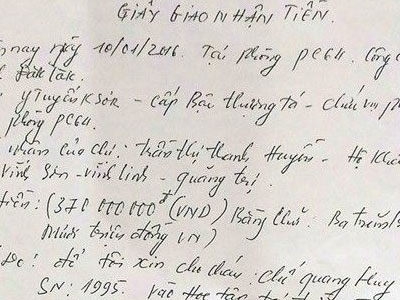 GIẤY GIAO NHẬN TIỀN.
nay ngày 10/01/2016. Tại phòng PC64. Công
Đăk Lăk.
Y Tuyến KSơr - cấp Bậc thượng tá - chức vụ p
phòng PC64.
nhận của chị: Trần Thị Thanh Huyền - Hộ Khẩ
Vĩnh Sơn - Vĩnh Linh - Quảng Trị.
tiền: (370 000 000 đ (VND) Bằng chữ: Ba trăm b
Mươi triệu đồng VN)
Do: để tôi xin cho cháu: chế quang Huy
SN: 1995. vào Học